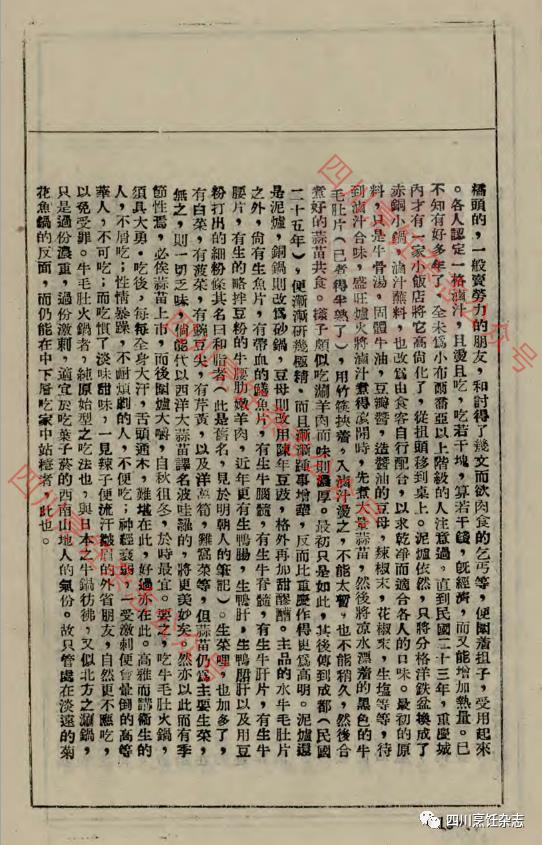 橋頭的，一般賣勞力的朋友，和討得了幾文而欲肉食的乞丐等，便圍着担子，受用起來
。各人認定一格滷汁，且燙且吃，吃若干塊，算若干錢，旣經濟，而又能增加熱量。已
不知有好多年了，全未爲小布爾喬亞以上階級的人注意過。直到民國二十三年，重慶城
內才有一家小飯店將它高尙化了，從担頭移到桌上。泥爐依然，只將分格洋鉄盆換成了
赤銅小鍋，滷汁蘸料，也改爲由食客自行配合，以求乾淨而適合各人的口味。最初的原
料，只是牛骨湯，固體牛油，豆瓣醬，造醬油的豆母，辣椒末，花椒末，生塩等等，待
到滷汁合味，盛旺爐火將滷汁煮得滾開時，先煮大量蒜苗，然後將凉水漂着的黑色的牛
毛肚片（已煮得半熟了），用竹筷挾着，入滷汁燙之，不能太暫，也不能稍久，然後合
煮好的蒜苗共食。樣子頗似吃涮羊肉而味則濃厚。最初只是如此，其後傳到成都（民國
二十五年），便漸漸研幾極精，而且漸漸踵事增華，反而比重慶作得更爲高明。泥爐還
是泥爐，銅鍋則改爲砂鍋，豆母則改用陳年豆豉，格外再加甜醪糟。主品的水牛毛肚片
之外，尙有生魚片，有帶血的鱔魚片，有生牛腦髓，有生牛脊髓，有生牛肝片，有生牛
腰片，有生的略拌豆粉的牛腰肋嫩羊肉，近年更有生鴨腸，生鴨肝，生鴨䐉肝以及用豆
粉打出的細粉條其名曰和脂者（此是舊名，見於明朝人的筆記）。生菜哩，也加多了，
有白菜，有菠菜，有豌豆尖，有芹黃，以及洋萵筍，雞窩菜等，但蒜苗仍爲主要生菜，
無之，則一切乏味，倘能代以西洋大蒜苗譯名波哇羅的，將更美妙矣。然亦以此而有季
節性焉，必俟蒜苗上市，而後圍爐大嚼，自秋徂冬，於時最宜。要之，吃牛毛肚火鍋，
須具大勇，吃後，每每全身大汗，舌頭通木，難堪在此，好過亦在此。高雅而講衛生的
人，不屑吃；性情暴躁，不耐煩劇的人，不便吃；神經衰弱，一受激刺便會暈倒的高等
華人，不可吃；而吃慣了淡味甜味，一見辣子便流汗皺眉的外省朋友，自然更不應吃，
以免受罪。牛毛肚火鍋者，純原始型之吃法也，與日本之牛鍋彷彿，又似北方之涮鍋，
只是過份濃重，過份激刺，適宜於吃葉子菸的西南山地人的氣份。故只管處在淡遠的菊
花魚鍋的反面，而仍能在中下層吃家中站穩者，此也。
四川烹饪杂志公众号
四川烹饪杂志公众号
四川烹饪杂志